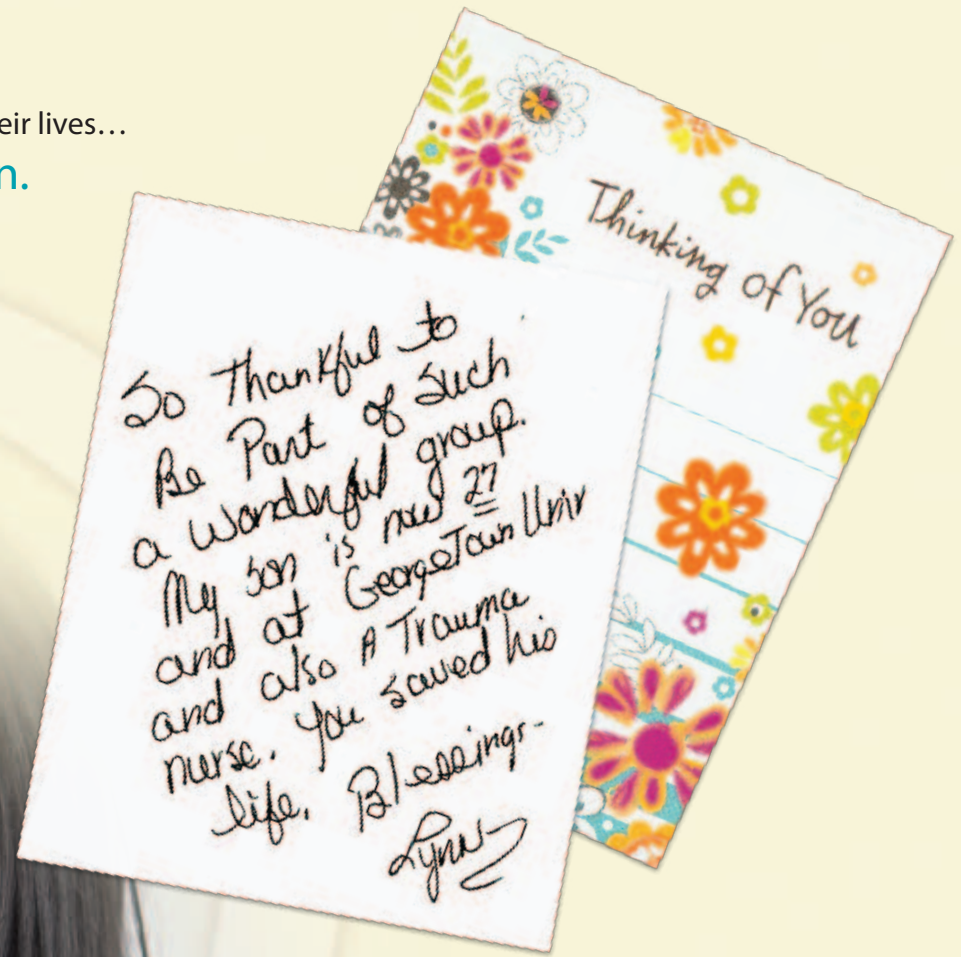 eir lives…
n.
Thinking of You
So Thankful to
Be Part of Such
a wonderful group.
My son is now 27
and at GeorgeTown Univ
and also A Trauma
nurse. You saved his
life. Blessings-
Lynn